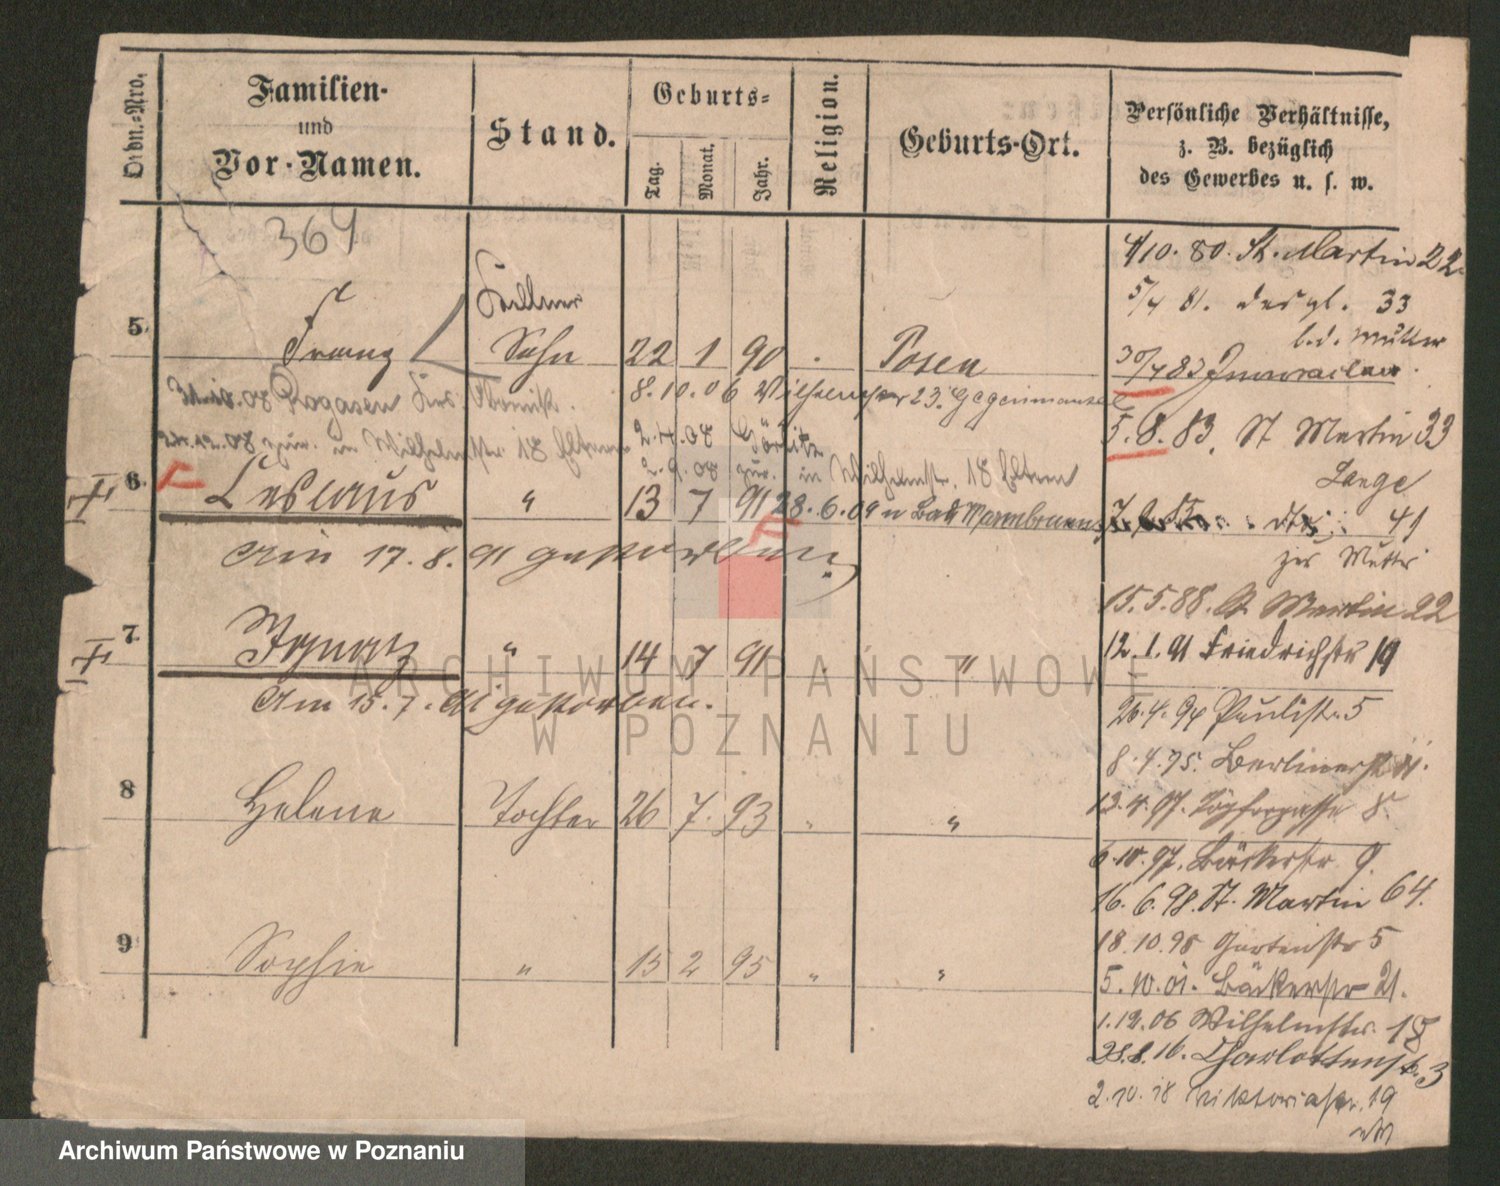 Ordn.-Nro.
Familien-
und
Vor-Namen.
Stand.
Geburts-
Tag.
Monat.
Jahr.
Religion.
Geburts-Ort.
Persönliche Verhältnisse,
z. B. bezüglich
des Gewerbes u. s. w.
364
4/10. 80. St. Martin 22
5/4 81. desgl. 33
b. d. Mutter
5. Franz Kellner
Sohn 22 1 90 Posen
30/4 83 Inowrazlaw.
31.10.07 Rogasen
8.10.06 23
5.8.83. St Martin 33
Lange
22.12.08 zur. in Wilhelmstr. 18 Eltern
2.4.08 Görlitz
2.9.08 zur. in Wilhelmstr. 18 Eltern
6. Leslaus " 13 7 91
28.6.09 n Bad Warmbrunn
41
zur Mutter
Am 17.8.91 gestorben
15.5.88. St Martin 22
7. Ignatz " 14 7 91 "
12.1.91 Friedrichstr 19
Am 15.7.91 gestorben.
26.4.94 Paulistr. 5
Berlinerstr
8 Helene Tochter 26 7. 93 " "
13.4.97. Töpfergasse 8.
6.10.97. Bäckerstr 9.
16.6.98. St. Martin 64.
9. Sophie " 15 2 95 " "
18.10.98 Gartenstr 5
5.10.01. Bäckerstr 21.
1.12.06 Wilhelmstr. 18
28.8.16. Charlottenstr. 3
2.10.18 Viktoriastr. 19
ARCHIWUM PAŃSTWOWE
W POZNANIU
Archiwum Państwowe w Poznaniu